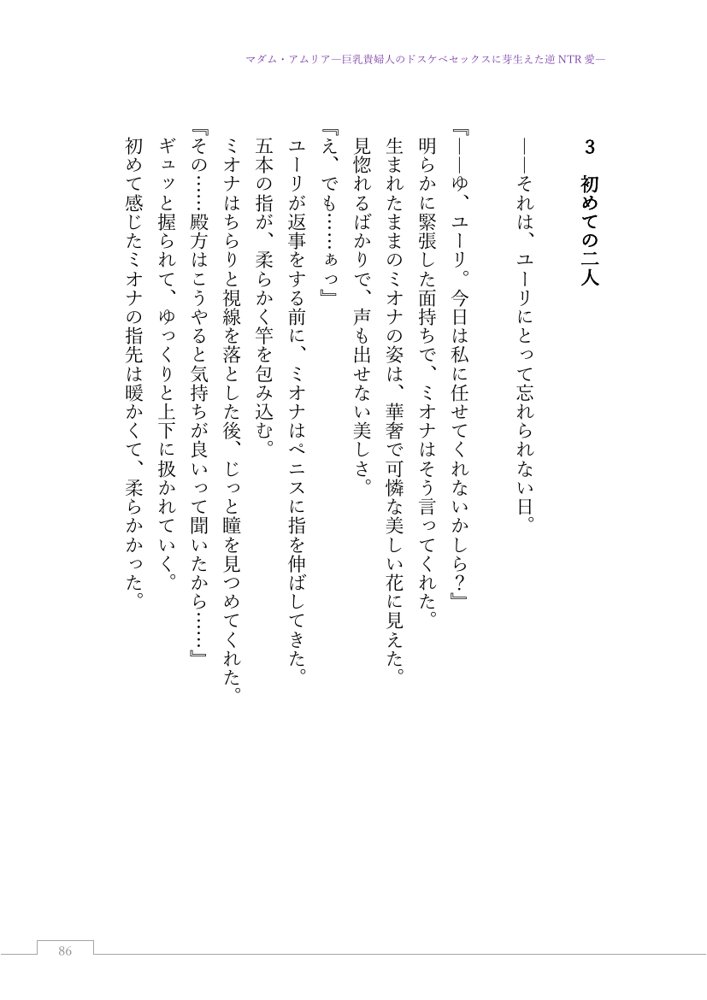 マダム・アムリア―巨乳貴婦人のドスケベセックスに芽生えた逆NTR愛―
3　初めての二人
――それは、ユーリにとって忘れられない日。
『――ゆ、ユーリ。今日は私に任せてくれないかしら？』
明らかに緊張した面持ちで、ミオナはそう言ってくれた。
生まれたままのミオナの姿は、華奢で可憐な美しい花に見えた。
見惚れるばかりで、声も出せない美しさ。
『え、でも……ぁっ』
ユーリが返事をする前に、ミオナはペニスに指を伸ばしてきた。
五本の指が、柔らかく竿を包み込む。
ミオナはちらりと視線を落とした後、じっと瞳を見つめてくれた。
『その……殿方はこうやると気持ちが良いって聞いたから……』
ギュッと握られて、ゆっくりと上下に扱かれていく。
初めて感じたミオナの指先は暖かくて、柔らかかった。
86